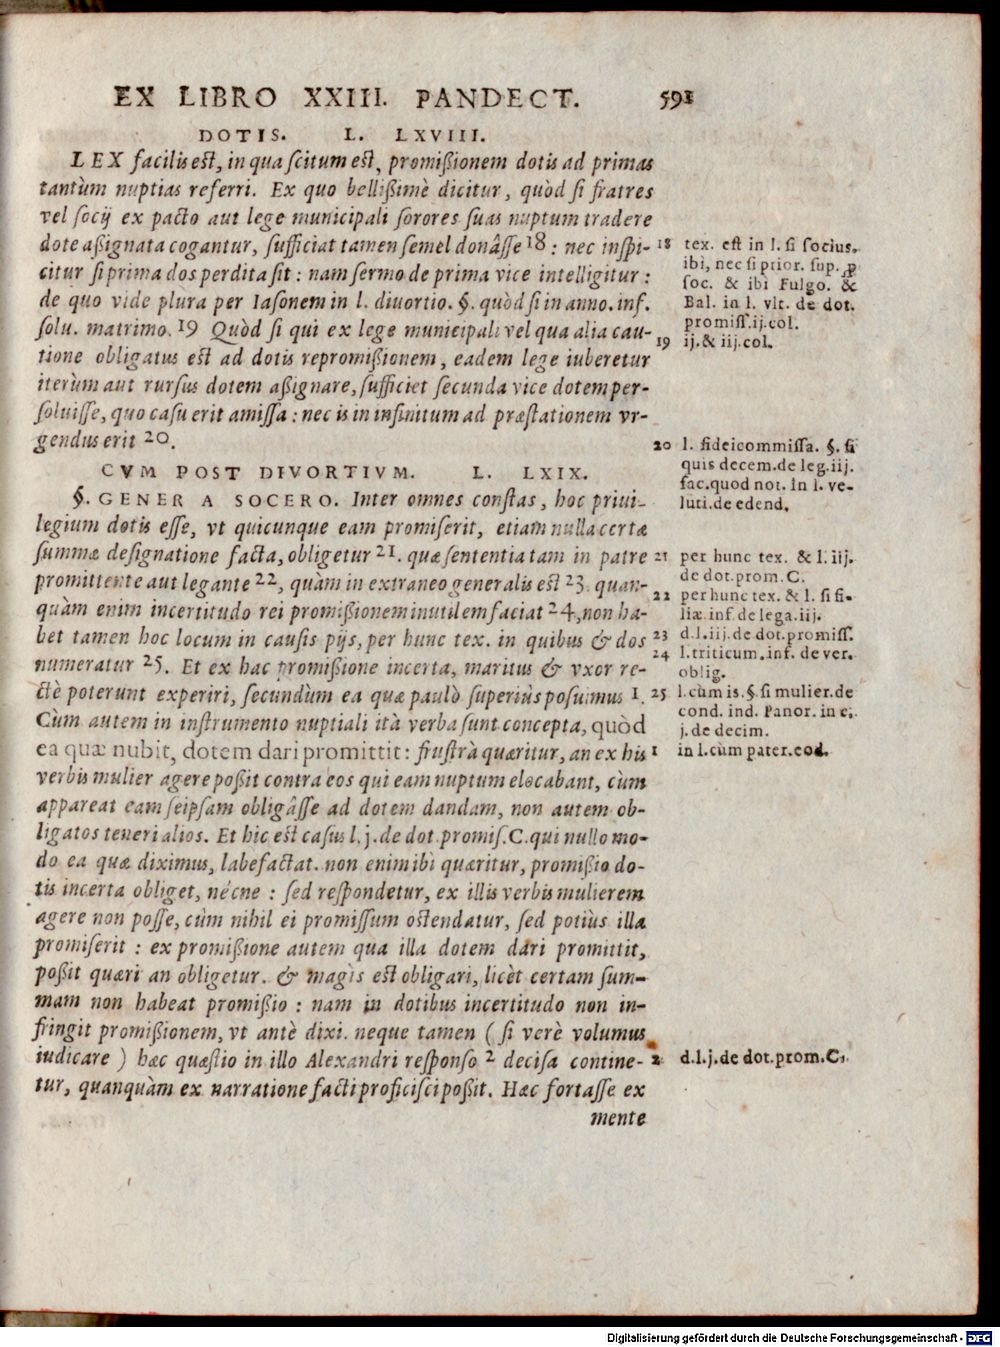 EX LIBRO XXIII. PANDECT. 591
DOTIS. L. LXVIII.
LEX facilis est, in qua scitum est, promißionem dotis ad primas
tantùm nuptias referri. Ex quo bellißimè dicitur, quòd si fratres
vel socij ex pacto aut lege municipali sorores suas nuptum tradere
dote aßignata cogantur, sufficiat tamen semel donâsse 18 : nec inspi-
citur si prima dos perdita sit : nam sermo de prima vice intelligitur :
de quo vide plura per Iasonem in l. diuortio. §. quòd si in anno. inf.
solu. matrimo. 19 Quòd si qui ex lege municipali vel qua alia cau-
tione obligatus est ad dotis repromißionem, eadem lege iuberetur
iterùm aut rursus dotem aßignare, sufficiet secunda vice dotem per-
soluisse, quo casu erit amissa : nec is in infinitum ad præstationem vr-
gendus erit 20.
CVM POST DIVORTIVM. L. LXIX.
§. GENER A SOCERO. Inter omnes constas, hoc priui-
legium dotis esse, vt quicunque eam promiserit, etiam nulla certæ
summæ designatione facta, obligetur 21. quæ sententia tam in patre
promittente aut legante 22, quàm in extraneo generalis est 23. quan-
quàm enim incertitudo rei promißionem inutilem faciat 24, non ha-
bet tamen hoc locum in causis pijs, per hunc tex. in quibus & dos
numeratur 25. Et ex hac promißione incerta, maritus & vxor re-
ctè poterunt experiri, secundùm ea quæ paulò superiùs posuimus 1.
Cùm autem in instrumento nuptiali ità verba sunt concepta, quòd
ea quæ nubit, dotem dari promittit : frustrà quæritur, an ex his
verbis mulier agere poßit contra eos qui eam nuptum elocabant, cùm
appareat eam seipsam obligâsse ad dotem dandam, non autem ob-
ligatos teneri alios. Et hic est casus l. j. de dot. promis. C. qui nullo mo-
do ea quæ diximus, labefactat. non enim ibì quæritur, promißio do-
tis incerta obliget, nécne : sed respondetur, ex illis verbis mulierem
agere non posse, cùm nihil ei promissum ostendatur, sed potiùs illa
promiserit : ex promißione autem qua illa dotem dari promittit,
poßit quæri an obligetur. & magìs est obligari, licèt certam sum-
mam non habeat promißio : nam in dotibus incertitudo non in-
fringit promißionem, vt antè dixi. neque tamen ( si verè volumus
iudicare ) hæc quæstio in illo Alexandri responso 2 decisa contine-
tur, quanquàm ex narratione facti proficisci poßit. Hæc fortasse ex
mente
18 tex. est in l. si socius.
ibi, nec si prior. sup. ꝓ
soc. & ibi Fulgo. &
Bal. in l. vlt. de dot.
promiss. ij. col.
19 ij. & iij. col.
20 l. fideicommissa. §. si
quis decem. de leg. iij.
fac. quod not. in l. ve-
luti. de edend.
21 per hunc tex. & l. iij.
de dot. prom. C.
22 per hunc tex. & l. si fi-
liæ. inf. de lega. iij.
23 d. l. iij. de dot. promiss.
24 l. triticum. inf. de ver.
oblig.
25 l. cùm is. §. si mulier. de
cond. ind. Panor. in c.
j. de decim.
1 in l. cùm pater. eod.
2 d. l. j. de dot. prom. C.
Digitalisierung gefördert durch die Deutsche Forschungsgemeinschaft - DFG